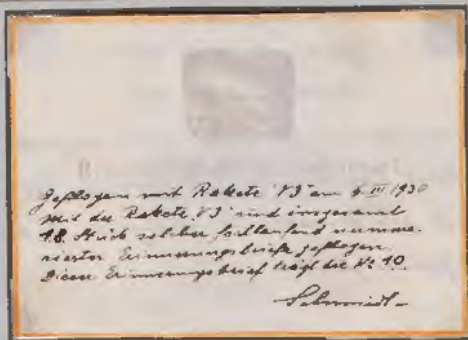 Geflogen mit Rakete V3 am 4. III 1930
Mit der Rakete V3 sind insgesamt
18 Stück solcher fortlaufend numme-
rierter Erinnerungsbriefe geflogen.
Dieser Erinnerungsbrief trägt die No 10.
Schmiedl